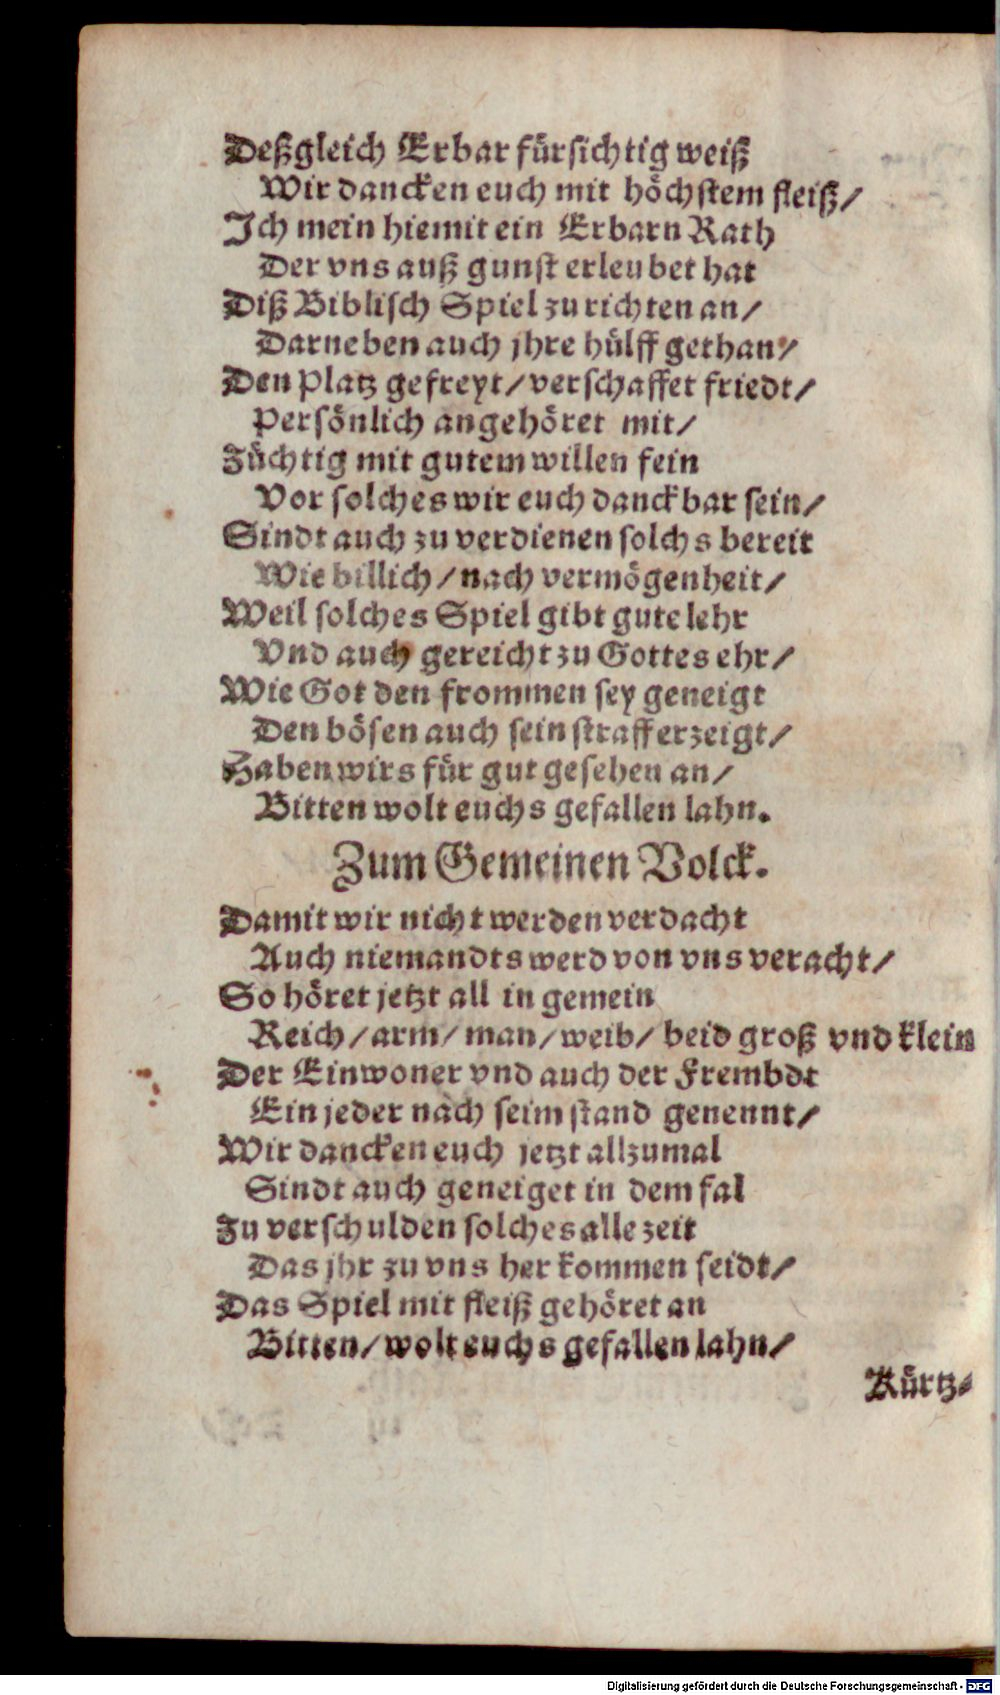 Deßgleich Erbar fürsichtig weiß
Wir dancken euch mit höchstem fleiß/
Ich mein hiemit ein Erbarn Rath
Der vns auß gunst erleubet hat
Diß Biblisch Spiel zu richten an/
Darneben auch jhre hülff gethan/
Den Platz gefreyt/ verschaffet friedt/
Persönlich angehöret mit/
Züchtig mit gutem willen fein
Vor solches wir euch danckbar sein/
Sindt auch zu verdienen solchs bereit
Wie billich/ nach vermögenheit/
Weil solches Spiel gibt gute lehr
Vnd auch gereicht zu Gottes ehr/
Wie Got den frommen sey geneigt
Den bösen auch sein straff erzeigt/
Haben wirs für gut gesehen an/
Bitten wolt euchs gefallen lahn.
Zum Gemeinen Volck.
Damit wir nicht werden verdacht
Auch niemandts werd von vns veracht/
So höret jetzt all in gemein
Reich/ arm/ man/ weib/ beid groß vnd klein
Der Einwoner vnd auch der Frembdt
Ein jeder nach seim stand genennt/
Wir dancken euch jetzt allzumal
Sindt auch geneiget in dem fal
Zu verschulden solches alle zeit
Das jhr zu vns her kommen seidt/
Das Spiel mit fleiß gehöret an
Bitten/ wolt euchs gefallen lahn/
Kürtz-
Digitalisierung gefördert durch die Deutsche Forschungsgemeinschaft - DFG